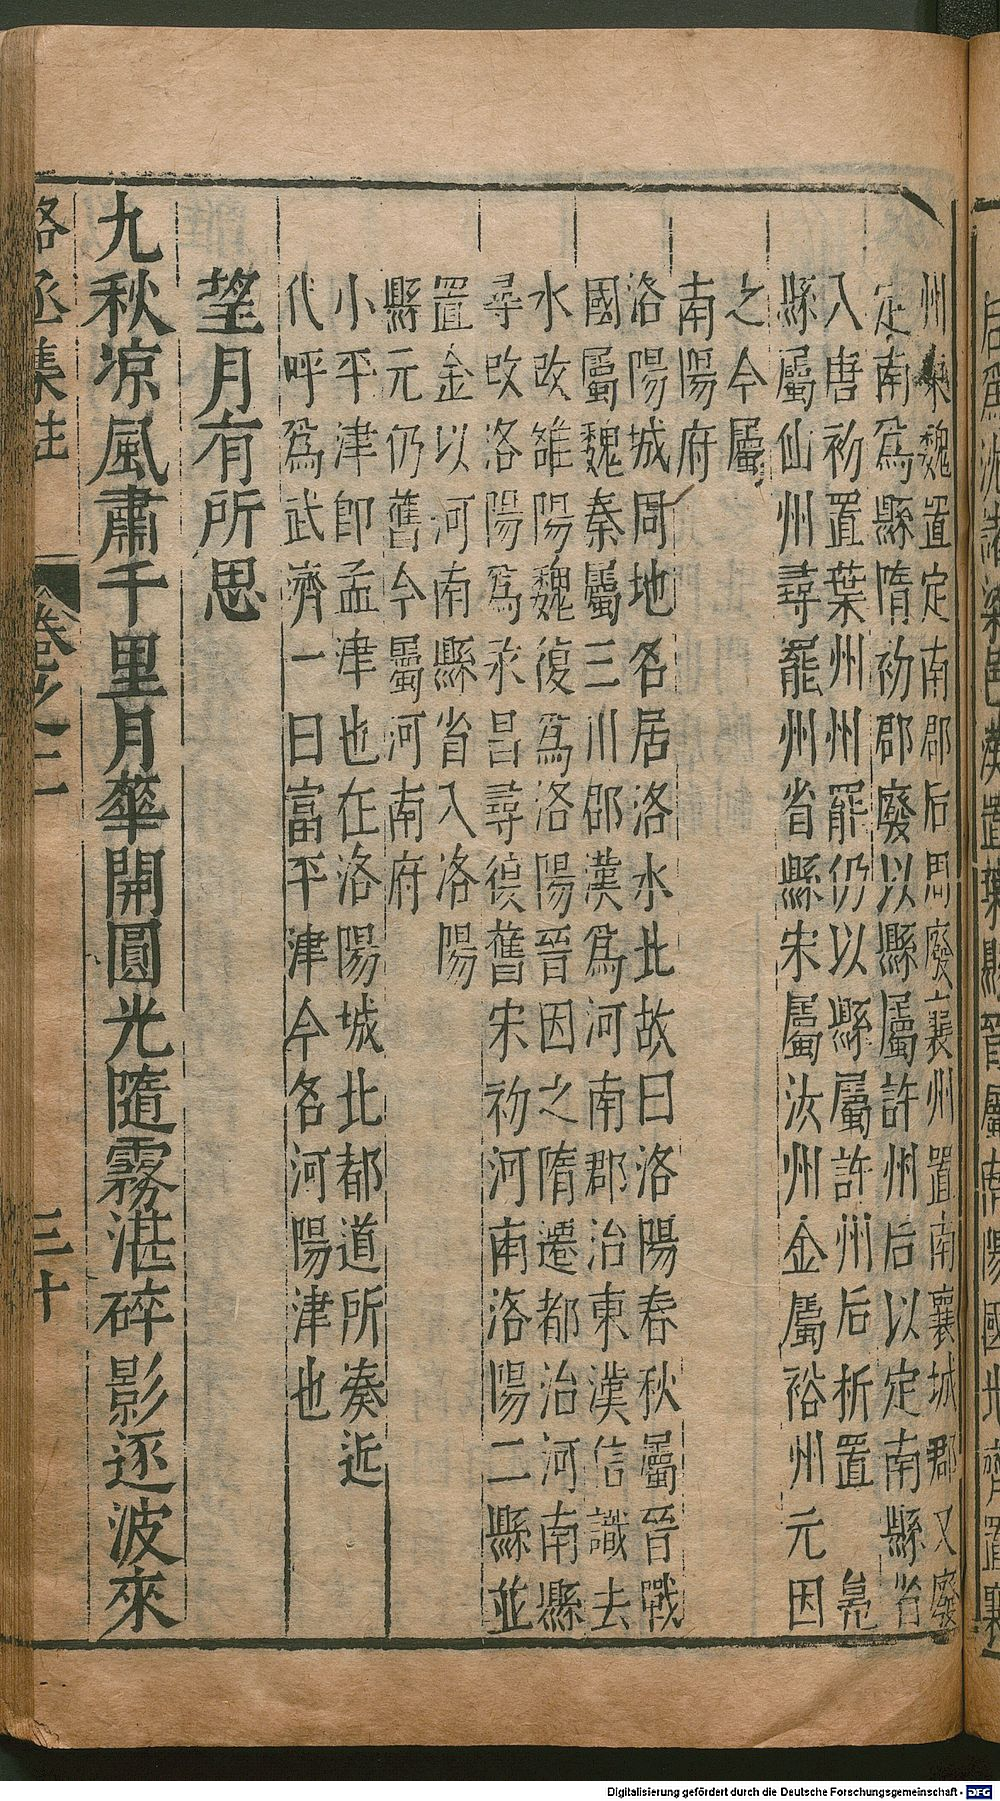 州東魏置定南郡后周廢襄州置南襄城郡又廢
定南爲縣隋初郡廢以縣屬許州后以定南縣省
入唐初置葉州州罷仍以縣屬許州后折置
縣屬仙州尋罷州省縣宋屬汝州金屬裕州元因
之今屬
南陽府
洛陽城周地名居洛水北故曰洛陽春秋屬晉戰
國屬魏秦屬三川郡漢爲河南郡治東漢信識去
水改雒陽魏復爲洛陽晉因之隋遷都治河南縣
尋改洛陽爲永昌尋復舊宋初河南洛陽二縣並
置金以河南縣省入洛陽
縣元仍舊今屬河南府
小平津卽孟津也在洛陽城北都道所湊近
代呼爲武濟一曰富平津今名河陽津也
望月有所思
九秋凉風肅千里月華開圓光隨霧湛碎影逐波來
駱丞集註 卷之二 三十
Digitalisierung gefördert durch die Deutsche Forschungsgemeinschaft - DFG